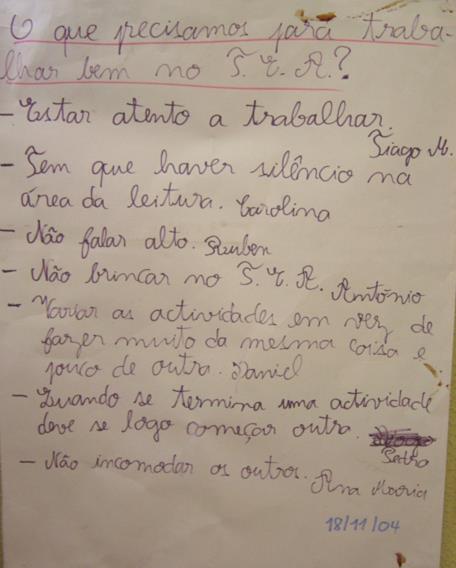 O que precisamos para traba-
lhar bem no T. E. A.?
- Estar atento a trabalhar.
Tiago M.
- Tem que haver silêncio na
área da leitura. Carolina
- Não falar alto. Ruben
- Não brincar no T. E. A. António
- Variar as actividades em vez de
fazer muito da mesma coisa e
pouco de outra. Daniel
- Quando se termina uma actividade
deve se logo começar outra.
Pedro
- Não incomodar os outros.
Ana Maria
18/11/04